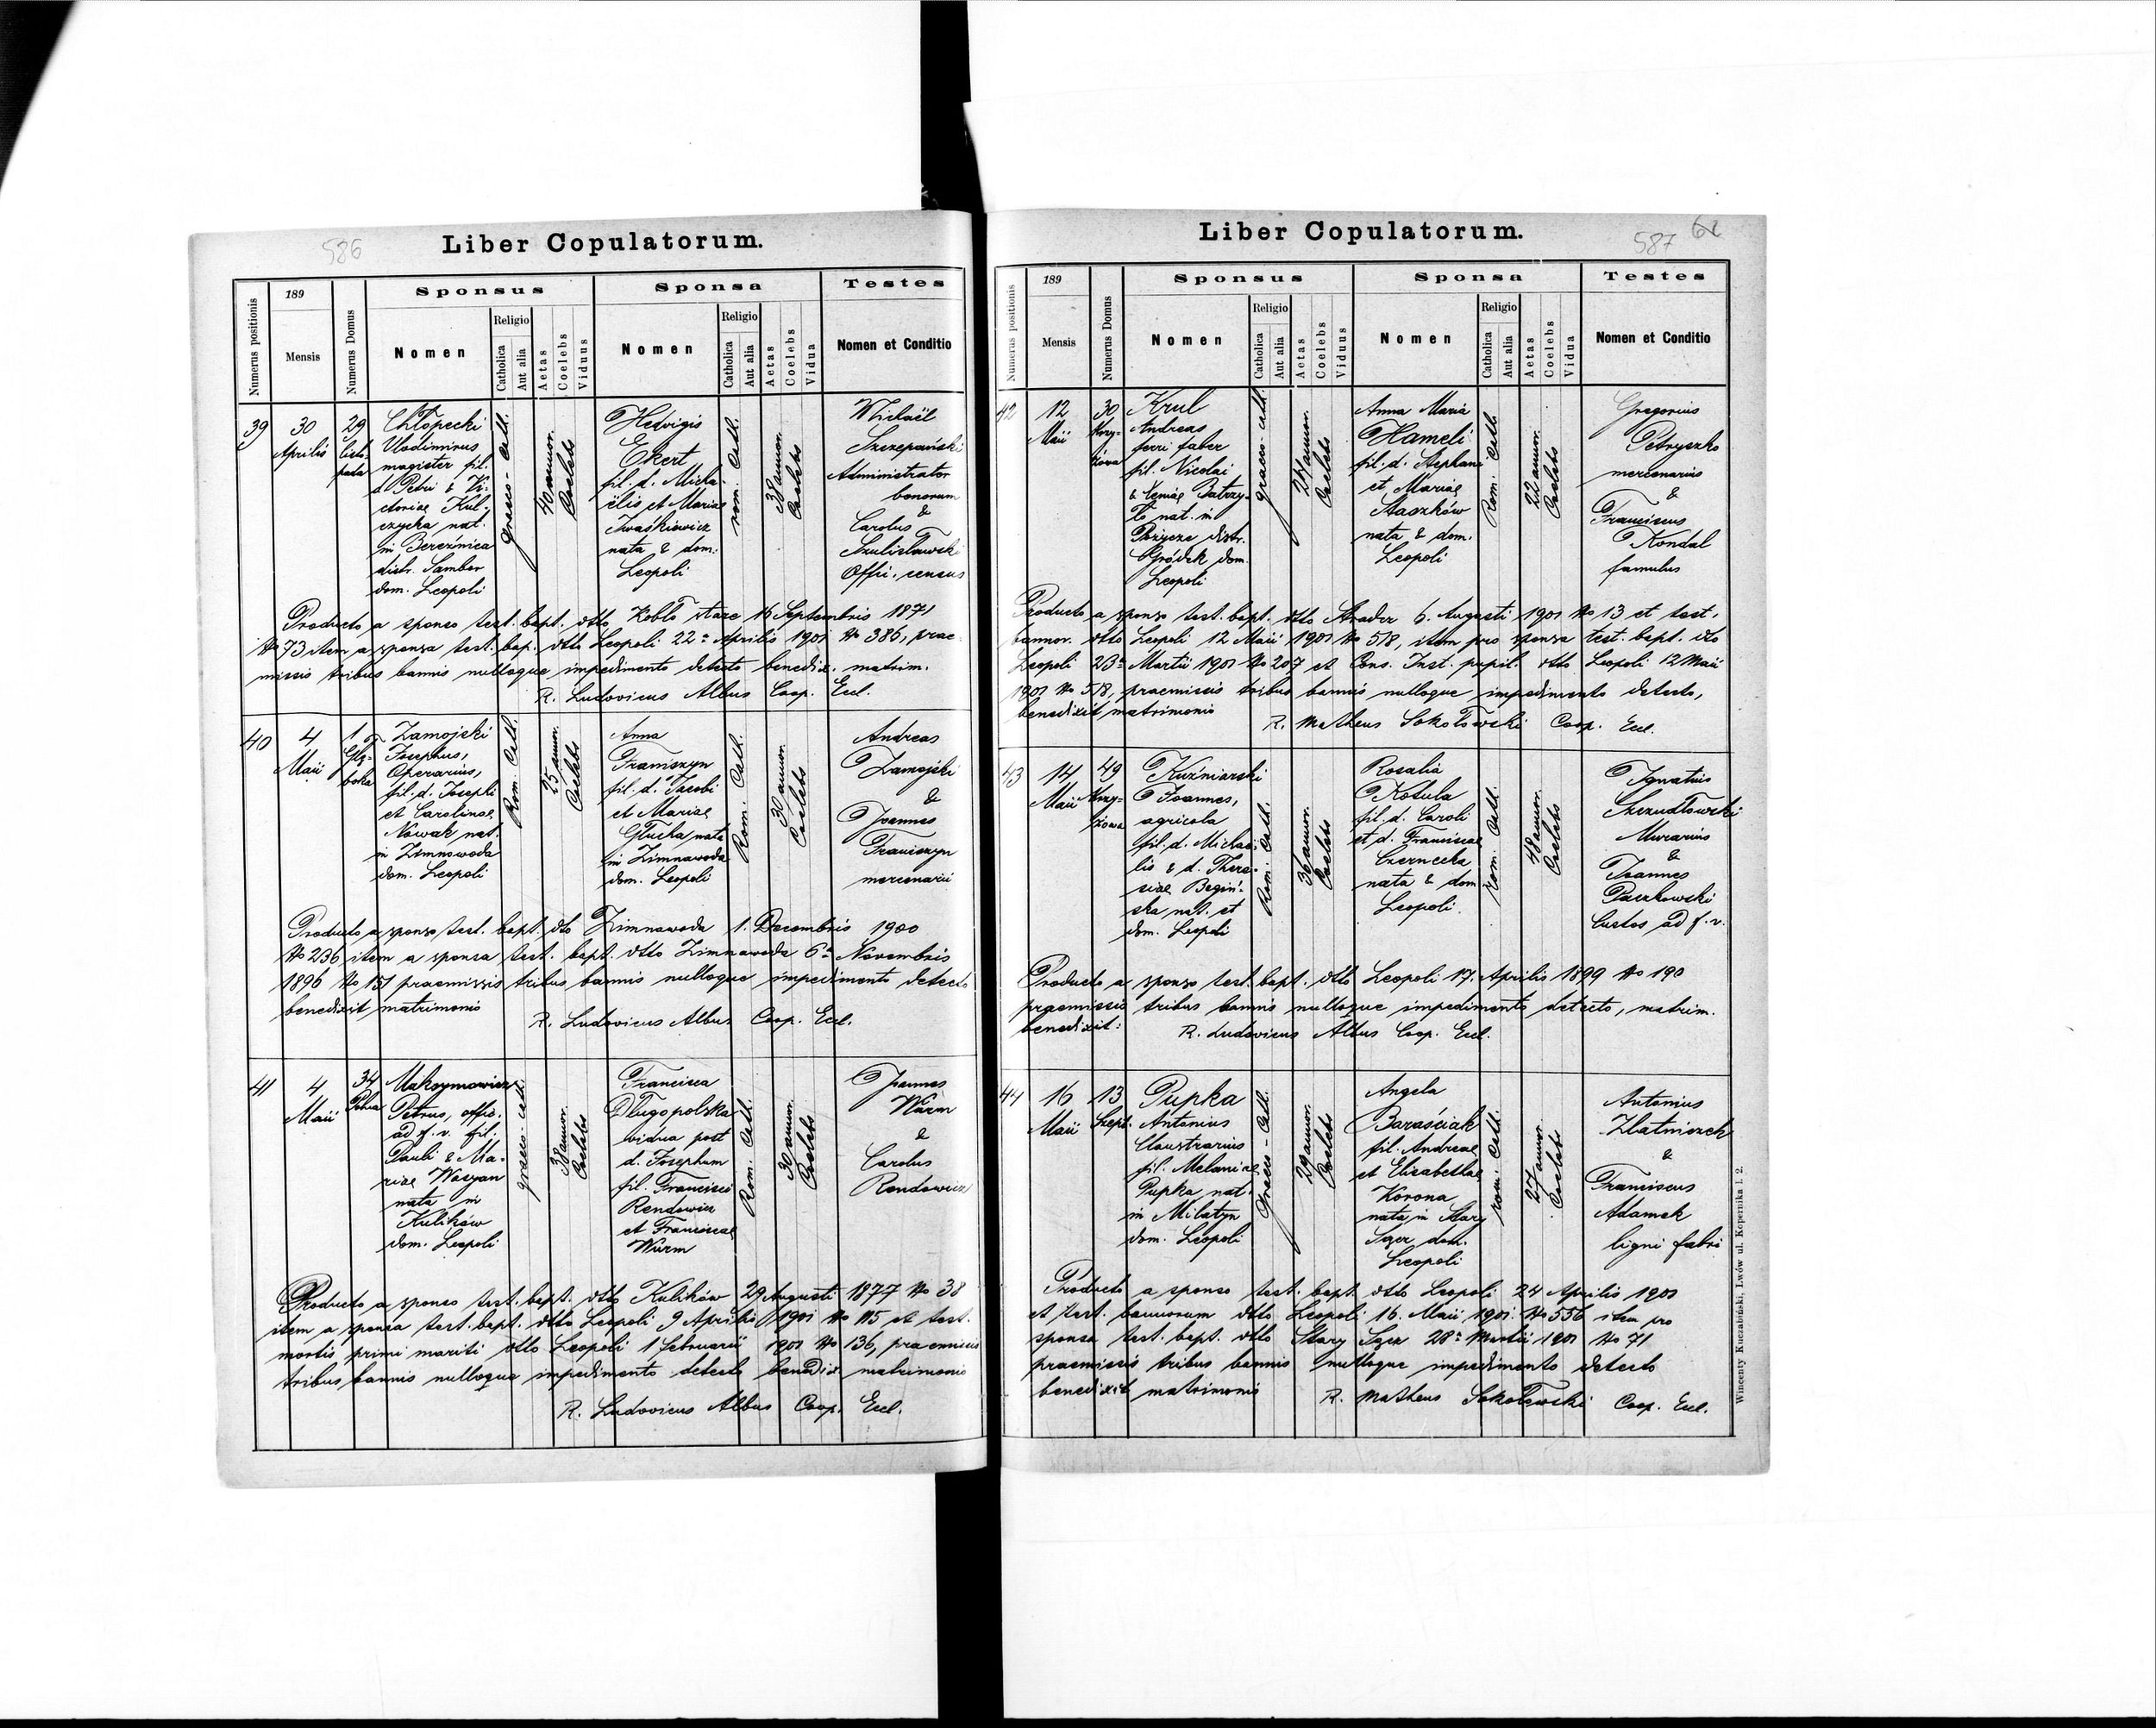 586
Liber Copulatorum.
Numerus positionis
189
Mensis
Numerus Domus
Sponsus
Nomen
Religio
Catholica
Aut alia
Aetas
Coelebs
Viduus
Sponsa
Nomen
Religio
Catholica
Aut alia
Aetas
Coelebs
Vidua
Testes
Nomen et Conditio
39
30
Aprilis
29
Listo-
pada
Chłopecki
Vladimirus
magister fil.
d. Petri & Vi-
ctoriae Kul-
czycka nat.
in Bereźnica
distr. Sambor
dom. Leopoli
graeco-cath.
40 annor.
Coelebs
Hedvigis
Ekert
fil. d. Micha-
ëlis et Mariae
Iwaśkiewicz
nata & dom.
Leopoli
rom. Cath.
38 annor.
Coelebs
Michaël
Szczepański
Administrator
bonorum
&
Carolus
Szulisławski
Offic. census
Producto a sponso test. bapt. dtto Kobło stare 16 Septembris 1871
No 73 item a sponsa test. bap. dtto Leopoli 22a Aprilis 1901 No 385, prae-
missis tribus bannis nulloque impedimento detecto benedix. matrim.
R. Ludovicus Albus Coop. Eccl.
40
4
Maii
1
Głę-
boka
Zamojski
Josephus,
Operarius,
fil. d. Josephi
et Carolinae
Nowak nat.
in Zimnowoda
dom. Leopoli
Rom. Cath.
25 annor.
Coelebs
Anna
Franiszyn
fil. d. Jacobi
et Mariae
Głucha nata
in Zimnawoda
dom. Leopoli
Rom. Cath.
30 annor.
Coelebs
Andreas
Zamojski
&
Joannes
Franiszyn
mercenarii
Producto a sponso test. bapt. dto Zimnawoda 1. Decembris 1900
No 236 item a sponsa test. bapt. dtto Zimnawoda 6a Novembris
1896 No 151 praemissis tribus bannis nulloque impedimento detecto
benedixit matrimonio
R. Ludovicus Albus Coop. Eccl.
41
4
Maii
34
Maksymowicz
Petrus, offic.
ad f. v. fil.
Pauli & Ma-
riae Wasyan
nata in
Kulików
dom. Leopoli
graeco-cath.
38 annor.
Coelebs
Francisca
Długopolska
vidua post
d. Josephum
fil. Francisci
Rendowicz
et Franciscae
Wurm
Rom. Cath.
30 annor.
Coelebs
Joannes
Wurm
&
Carolus
Rendowicz
Producto a sponso test. bapt. dtto Kulików 29 Augusti 1877 No 38
item a sponsa test. bapt. dtto Leopoli 9 Aprilis 1901 No 115 et test.
mortis primi mariti dtto Leopoli 1 Februarii 1901 No 136, praemissis
tribus bannis nulloque impedimento detecto benedix matrimonio
R. Ludovicus Albus Coop. Eccl.
Liber Copulatorum.
587
Numerus positionis
189
Mensis
Numerus Domus
Sponsus
Nomen
Religio
Catholica
Aut alia
Aetas
Coelebs
Viduus
Sponsa
Nomen
Religio
Catholica
Aut alia
Aetas
Coelebs
Vidua
Testes
Nomen et Conditio
42
12
Maii
30
Krzy-
żowa
Krul
Andreas
ferri faber
fil. Nicolai
& Xeniae Batrzy-
nat. in
distr.
Gródek dom.
Leopoli
graeco-cath.
24 annor.
Coelebs
Anna Maria
Hameli
fil. d. Stephani
et Mariae
Staszków
nata & dom.
Leopoli
Rom. Cath.
22 annor.
Coelebs
Gregorius
Petryszko
mercenarius
&
Franciscus
Kondal
famulus
Producto a sponso test. bapt. dtto Stradcz 6. Augusti 1901 No 13 et test.
bannor. dtto Leopoli 12 Maii 1901 No 518, item pro sponsa test. bapt. dto
Leopoli 23a Martii 1901 No 207 et Cons. Inst. pupil. dtto Leopoli 12 Maii
1901 No 518, praemissis tribus bannis nulloque impedimento detecto,
benedixit matrimonio
R. Matheus Sokołowski Coop. Eccl.
43
14
Maii
49
Krzy-
żowa
Kuźniarski
Joannes,
agricola
fil. d. Michae-
lis & d. There-
siae Begiń-
ska nat. et
dom. Leopoli
Rom. Cath.
36 annor.
Coelebs
Rosalia
Kotula
fil. d. Caroli
et d. Franciscae
Czernecka
nata & dom
Leopoli.
rom. Cath.
48 annor.
Coelebs
Ignatius
Szczudłowski
Murarius
&
Joannes
Paczkowski
Custos ad f. v.
Producto a sponso test. bapt. dtto Leopoli 17. Aprilis 1899 No 190
praemissis tribus bannis nulloque impedimento detecto, matrim.
benedixit:
R. Ludovicus Albus Coop. Eccl.
44
16
Maii
13
Szept.
Pupka
Antonius
Claustrarius
fil. Melaniae
Pupka nat.
in Milatyn
dom. Leopoli
Graeco-Cath.
29 annor.
Coelebs
Angela
Baraściak
fil. Andreae
et Elisabethae
Korona
nata in Stary
Sącz dom.
Leopoli
rom. Cath.
27 annor.
Coelebs
Antonius
Zlatniczek
&
Franciscus
Adamek
ligni fabri
Producto a sponso test. bapt. dtto Leopoli 24 Aprilis 1901
et test. bannorum dtto Leopoli 16. Maii 1901 No 556 item pro
sponsa test. bapt. dtto Stary Sącz 28a Martii 1901 No 71
praemissis tribus bannis nulloque impedimento detecto
benedixit matrimonio
R. Matheus Sokołowski Coop. Eccl.
Wincenty Kuczabiński, Lwów ul. Kopernika l. 2.